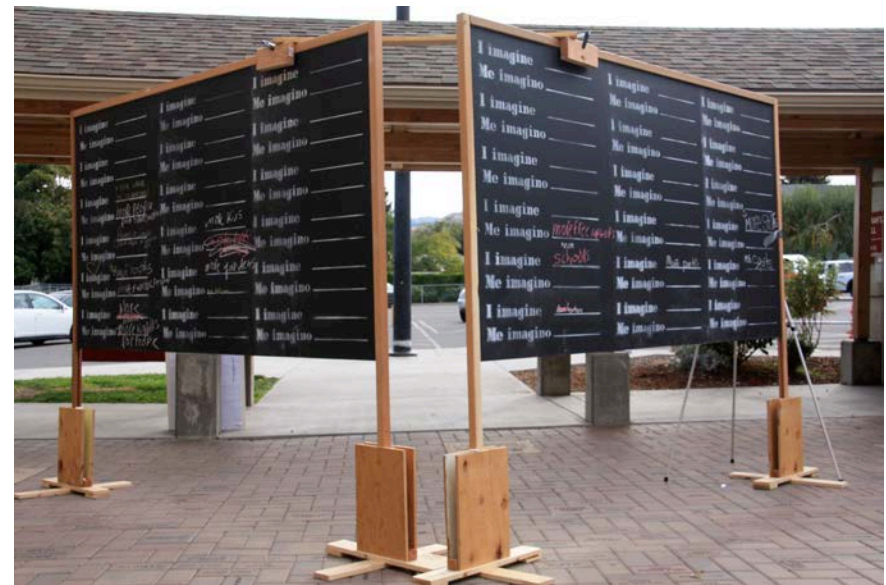 I imagine
Me imagino
I imagine
Me imagino
I imagine
Me imagino
I imagine
Me imagino
I imagine
Me imagino
I imagine
Me imagino
I imagine
Me imagino
I imagine
Me imagino
I imagine
Me imagino
I imagine
Me imagino
I imagine
Me imagino
I imagine
Me imagino
I imagine
Me imagino
I imagine
Me imagino
I imagine
Me imagino
I imagine
Me imagino
I imagine
Me imagino
I imagine
Me imagino
I imagine
Me imagino
I imagine
Me imagino
I imagine
Me imagino
I imagine
Me imagino
I imagine schools
Me imagino
I imagine
Me imagino
I imagine
Me imagino
I imagine
Me imagino
I imagine
Me imagino
I imagine
Me imagino
I imagine More parks
Me imagino
I imagine
Me imagino
I imagine
Me imagino
I imagine
Me imagino
I imagine
Me imagino
I imagine
Me imagino
I imagine
Me imagino
I imagine
Me imagino